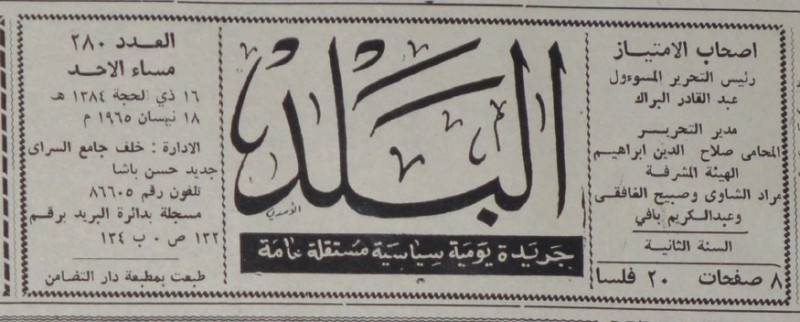 اصحاب الامتياز
رئيس التحرير المسوءول
عبد القادر البراك
مدير التحرير
المحامى صلاح الدين ابراهيم
الهيئة المشرفة
مراد الشاوى وصبيح الغافقى
وعبدالكريم بافي
السنة الثانية
٨ صفحات ٢٠ فلسا
البلد
جريدة يومية سياسية مستقلة عامة
العدد ٢٨٠
مساء الاحد
١٦ ذي الحجة ١٣٨٤ هـ
١٨ نيسان ١٩٦٥ م
الادارة : خلف جامع السراى
جديد حسن باشا
تلفون رقم ٨٦٦٠٥
مسجلة بدائرة البريد برقم
١٣٢ ص ٠ ب ١٣٤
طبعت بمطبعة دار التضامن